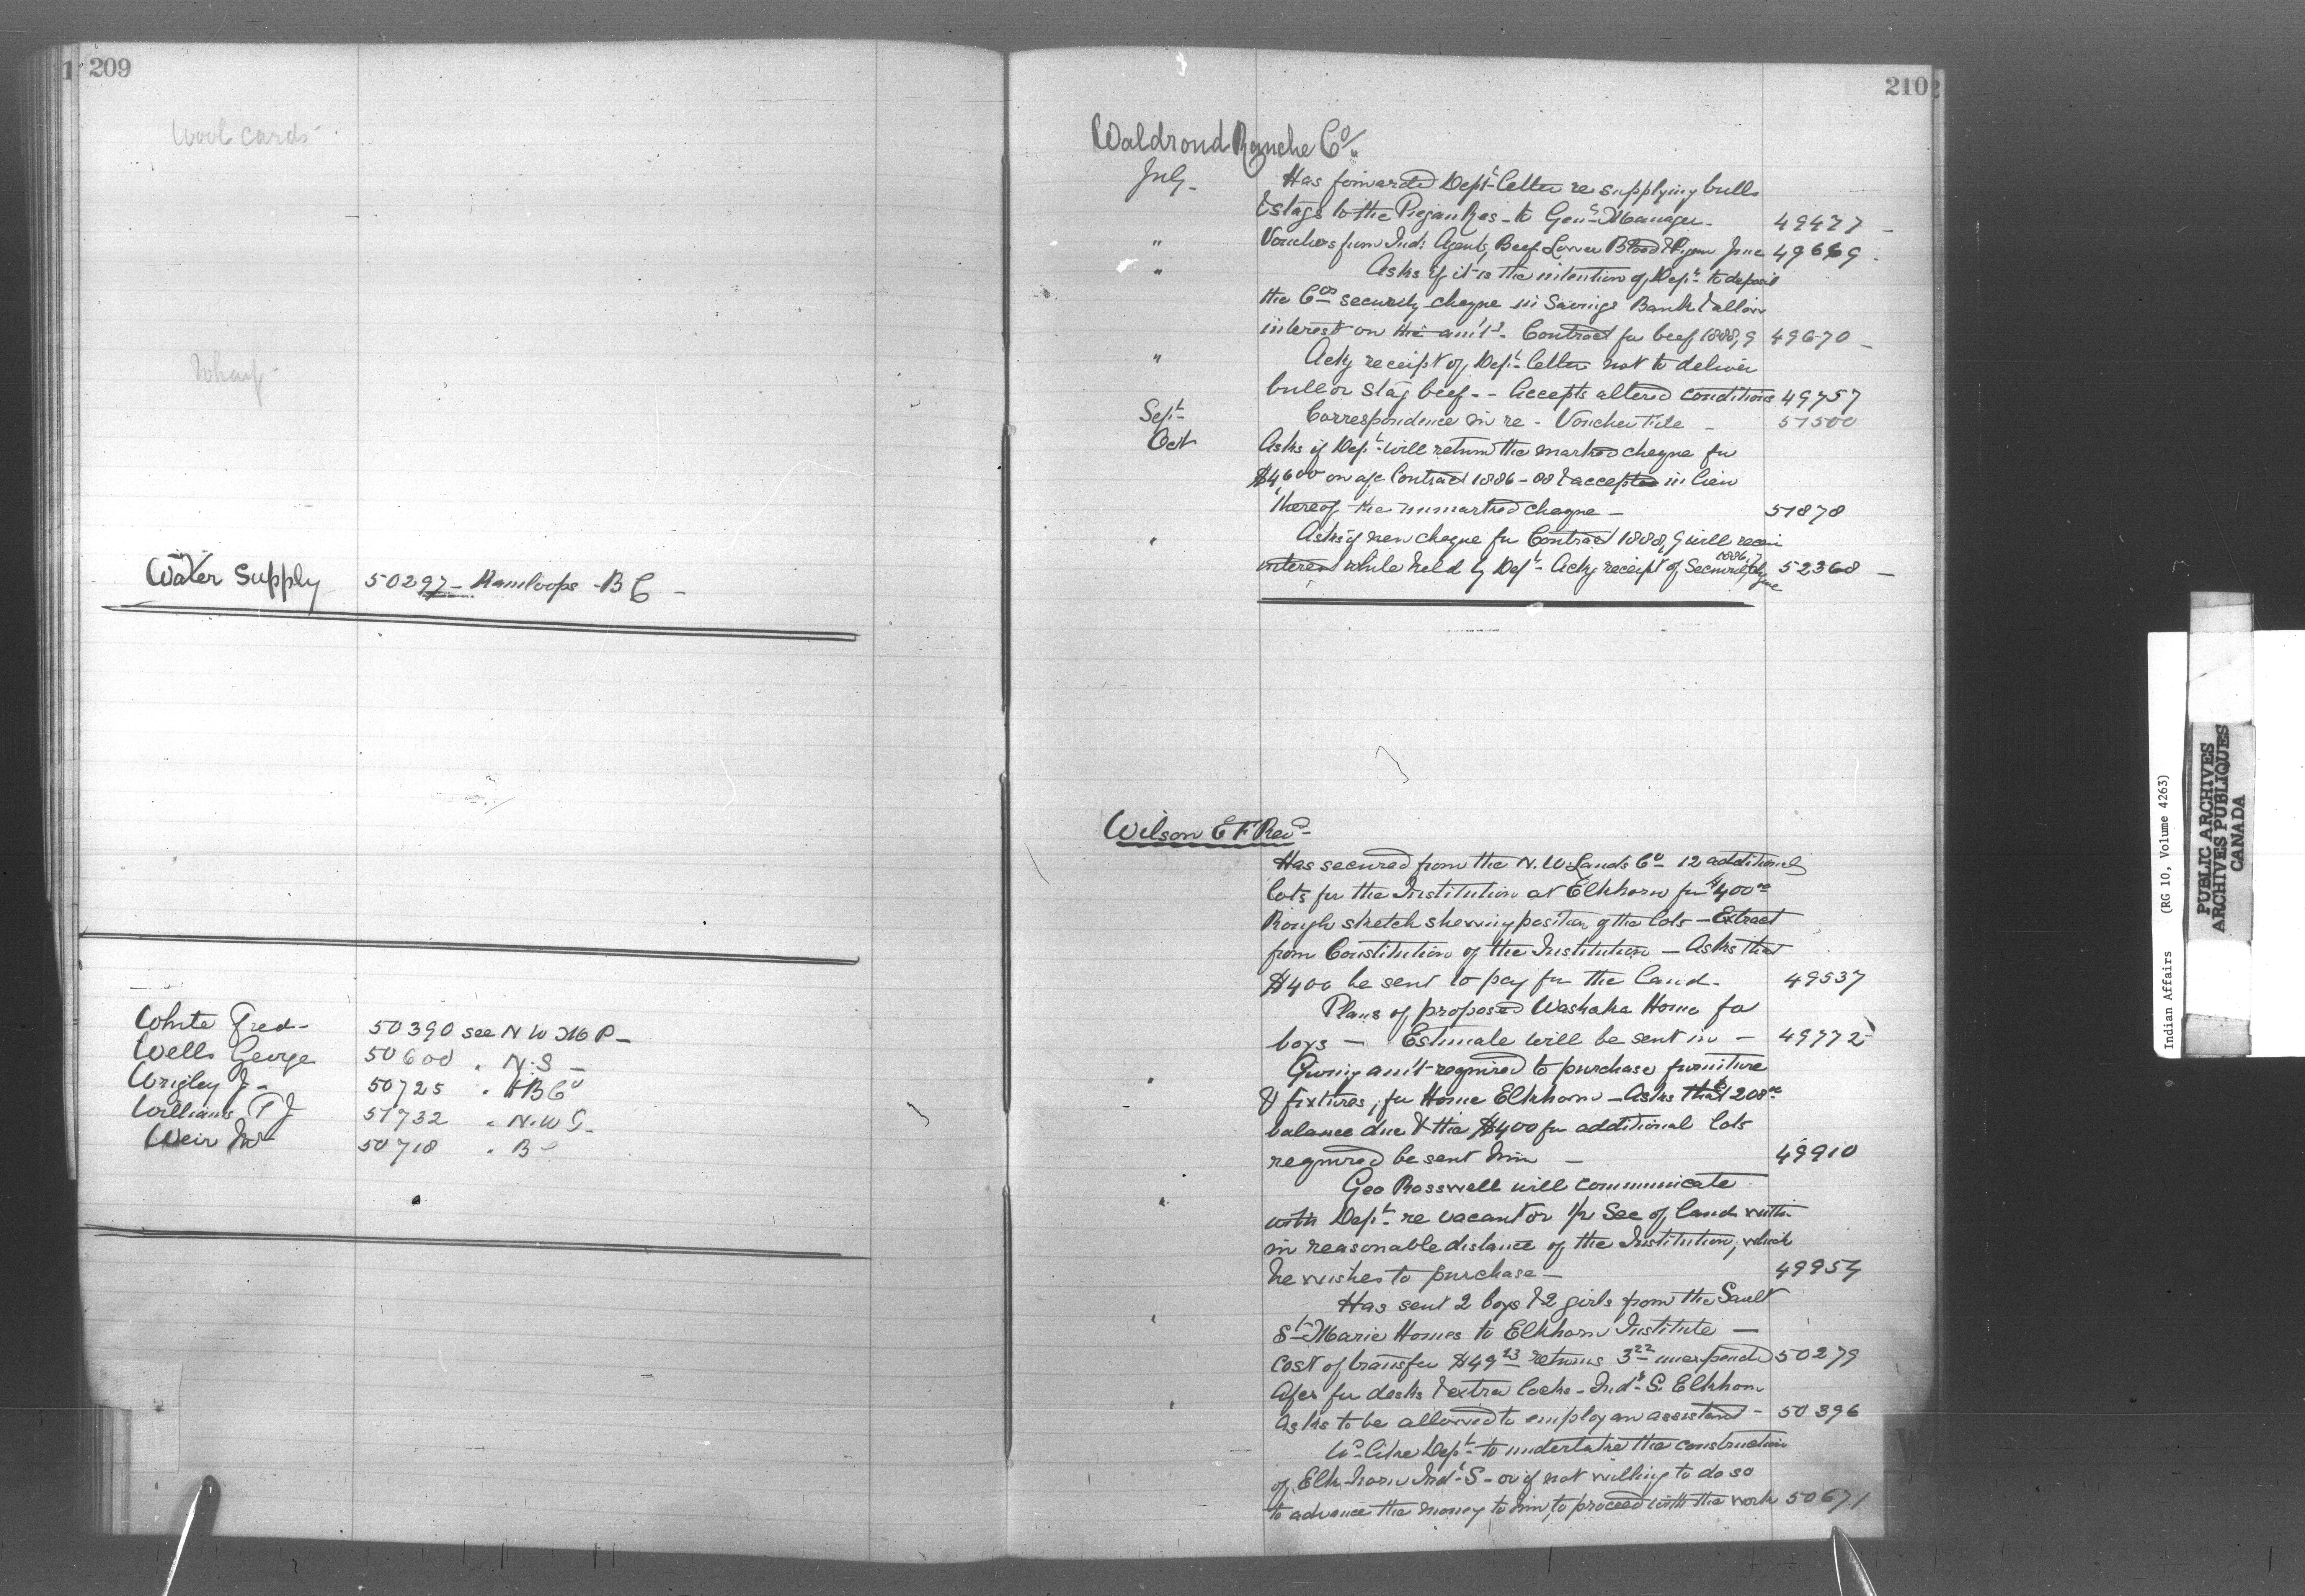 209
Wool cards
Wharf
Water Supply 50297 - Kamloops - B C -
White Fred - 50390 see N W M P -
Wells George 50600 " N. S -
Wrigley J - 50725 " H B Co
Williams T J 51732 " N. W T -
Weir Mr 50718 " B C
210
Waldrond Ranche Co.
July - Has forwarded Dept. letter re supplying bulls
& stags to the Piegan Res - to Genl. Manager - 49477 -
" Vouchers from Ind: Agents, Beef Lower Blood & Pigan June 49669 -
" Asks if it is the intention of Dept. to deposit
the Cos security cheque in Savings Bank & allow
interest on the am't - Contract for beef 1888,9 49670 -
" Ackg receipt of Dept. letter not to deliver
bull or stag beef - - Accepts altered conditions 49757
Sept. Correspondence in re - Voucher File - 51500
Oct Asks if Dept. will return the marked cheque for
$4,600 on a/c Contract 1886-88 & accepted in lieu
thereof the unmarked cheque - 51878
" Asks if new cheque for Contract 1888,9 will receive
interest while held by Dept. Ackg receipt of Security 1886,7 cheque 52368 -
Wilson E F Revd -
Has secured from the N. W. Lands Co - 12 additional
lots for the Institution at Elkhorn for $400.00
Rough sketch shewing position of the lots - Extract
from Constitution of the Institution - Asks that
$400 be sent to pay for the land - 49537
Plans of proposed Washaka Home for
boys - Estimate will be sent in - 49772
" Giving am't required to purchase furniture
& fixtures, for Home Elkhorn - Asks that $208.00
balance due & the $400 for additional lots
required be sent him - 49910
" Geo Rosswell will communicate
with Dept. re vacant or 1/2 Sec of land with-
in reasonable distance of the Institution, which
he wishes to purchase - 49954
" Has sent 2 boys & 2 girls from the Sault
St. Marie Homes to Elkhorn Institute -
Cost of transfer $49.23 returns 3.22 unexpended 50279
" A/cs for desks & extra locks - Indl. S. Elkhorn
Asks to be allowed to employ an assistant - 50396
Wd. like Dept. to undertake the construction
of Elk-horn Indl. S - or if not willing to do so
to advance the money to him, to proceed with the work 50671
Indian Affairs (RG 10, Volume 4263)
PUBLIC ARCHIVES
ARCHIVES PUBLIQUES
CANADA